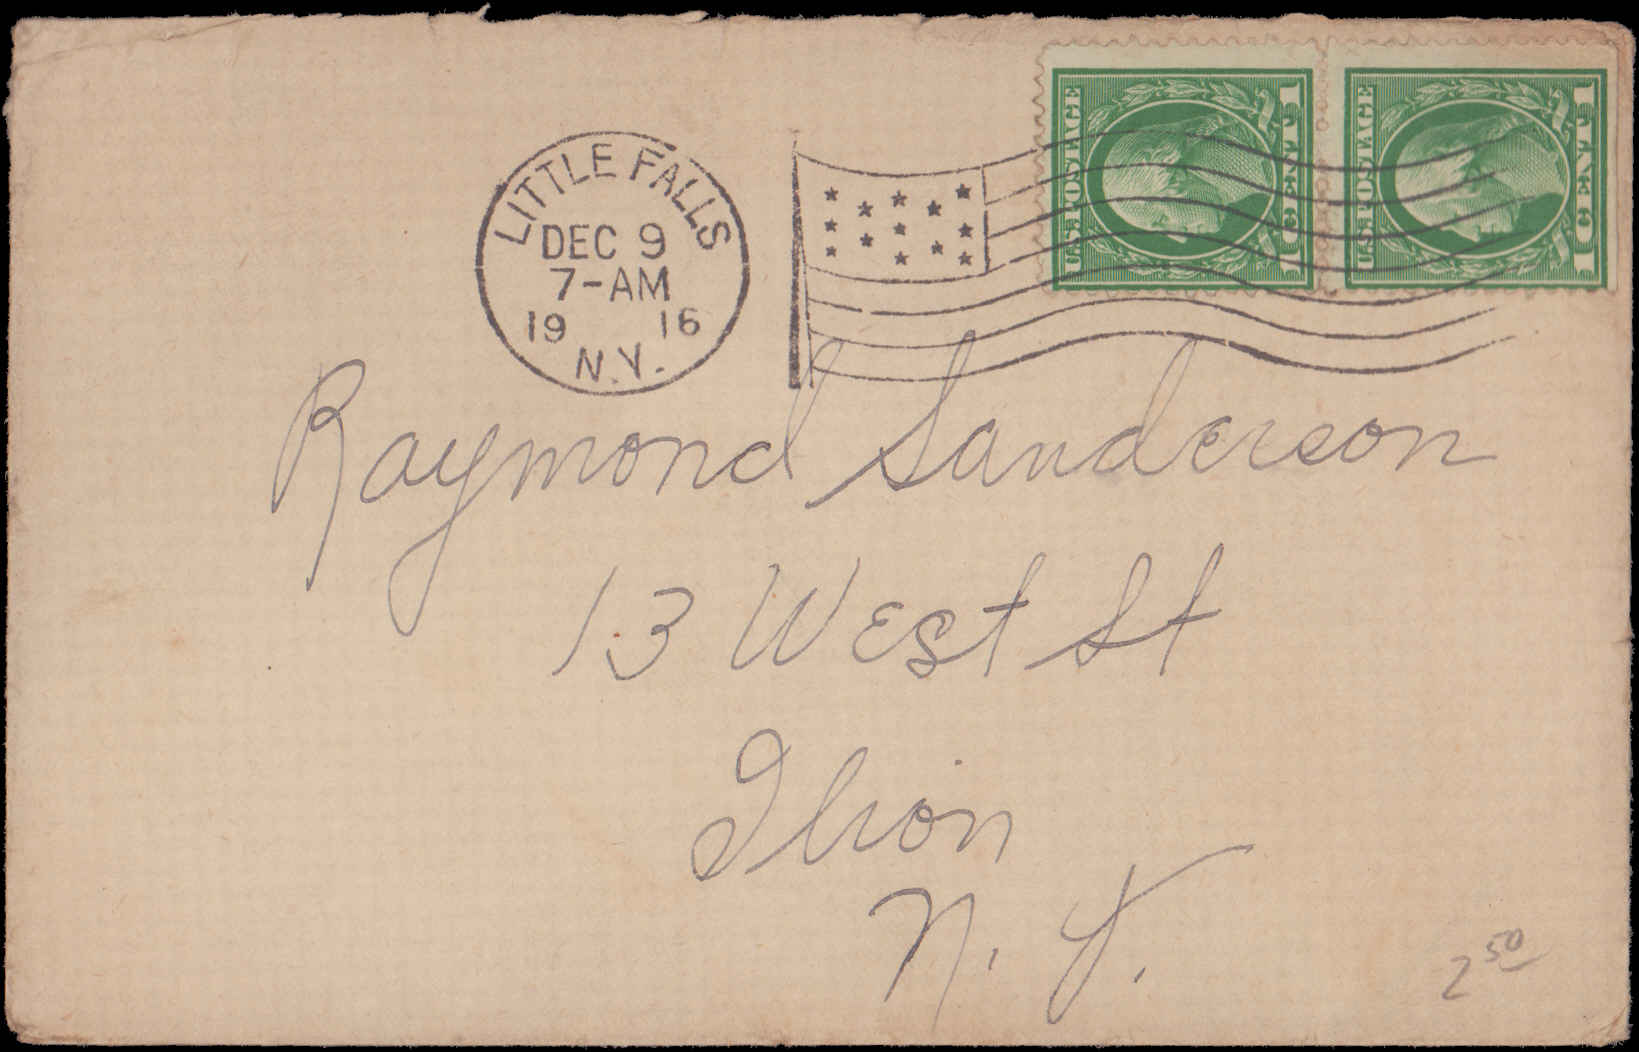 LITTLE FALLS
DEC 9
7-AM
19 16
N.Y.
U.S. POSTAGE
1 CENT 1
U.S. POSTAGE
1 CENT 1
Raymond Sanderson
13 West St
Ilion
N. Y.
2 50